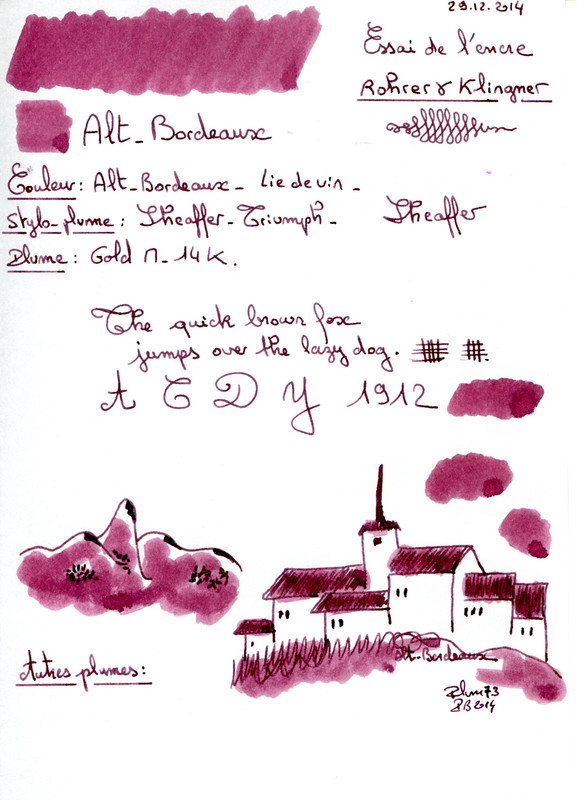 29.12.2014
Essai de l'encre
Rohrer & Klingner
Alt_Bordeaux
Couleur: Alt_Bordeaux_ Lie de vin_
Stylo_plume: Sheaffer_Triumph_
Sheaffer
Plume: Gold M_14K.
The quick brown fox
jumps over the lazy dog.
A C D Y 1912
Alt_Bordeaux
Autres plumes:
PB 2014